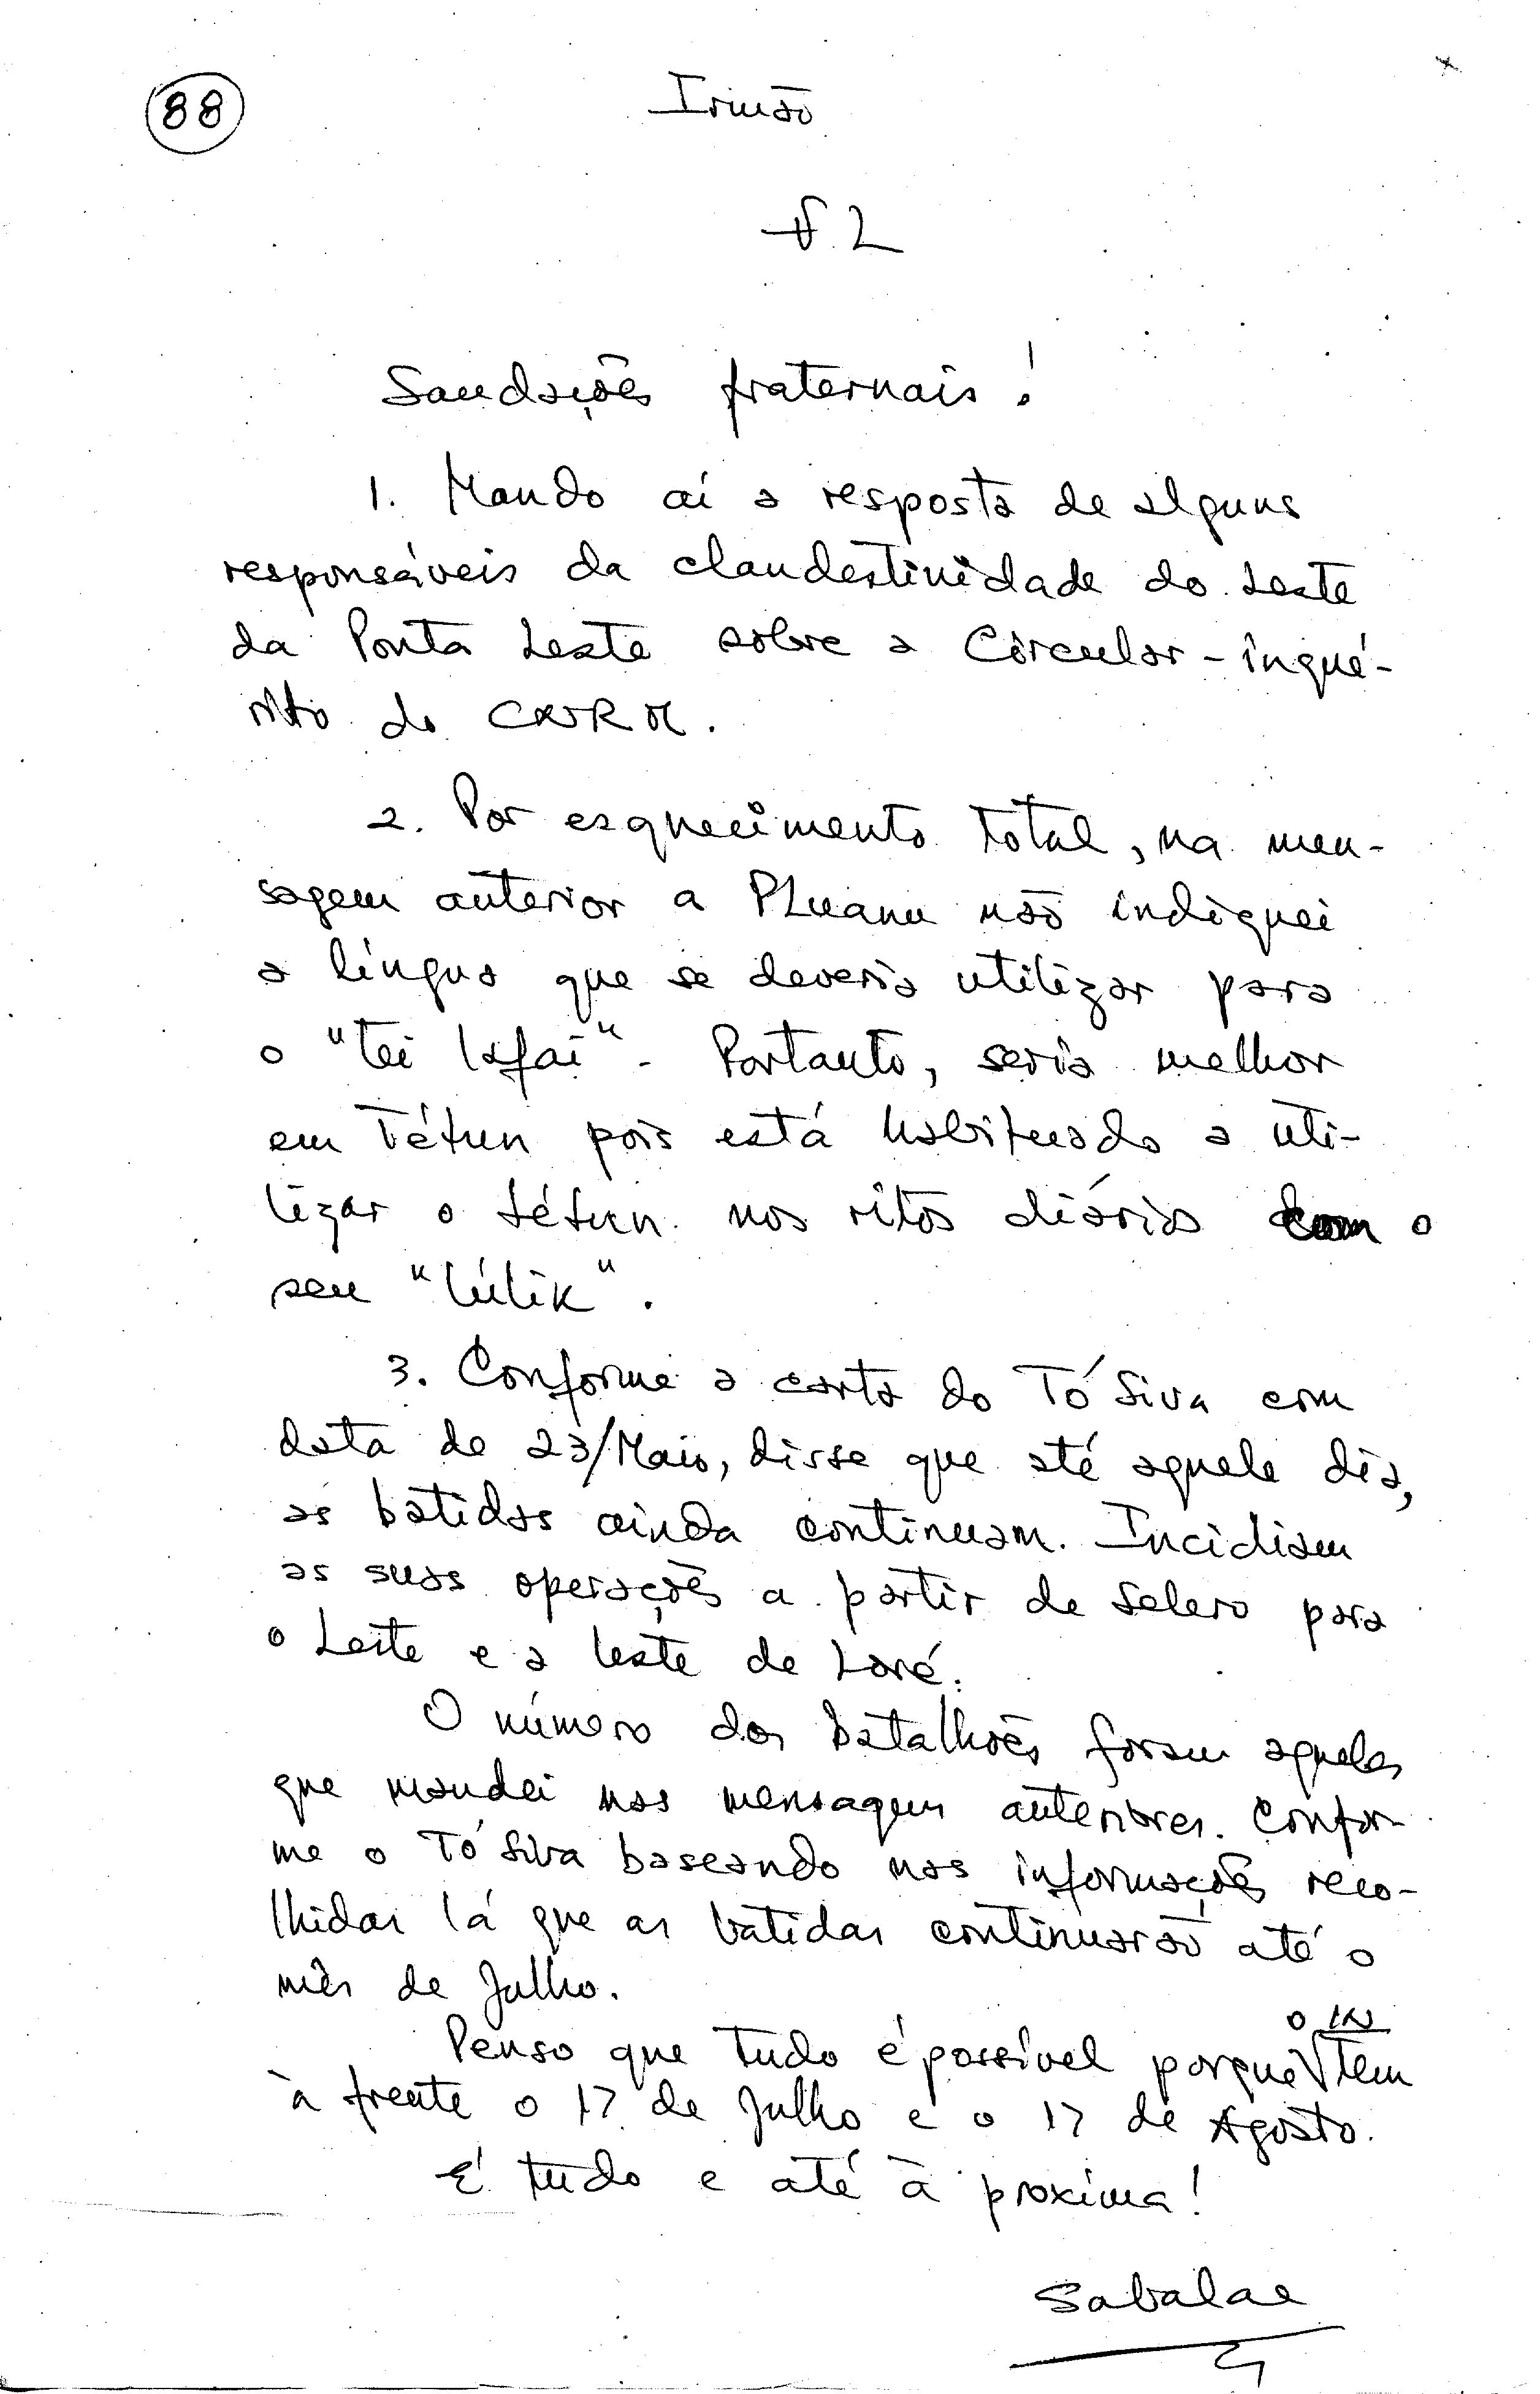 88
Irmão
Saudações fraternais!
1. Mando aí a resposta de alguns
responsáveis da clandestinidade do Leste
da Ponta Leste sobre a Circular-inqué-
rito do CNRM.
2. Por esquecimento total, na men-
sagem anterior a PLuanu não indiquei
a língua que se deveria utilizar para
o "tei lafai". Portanto, seria melhor
em Tétun pois está habituado a uti-
lizar o tétun nos ritos diários com o
seu "lúlik".
3. Conforme a carta do Tó Siva com
data de 23/Maio, disse que até aquele dia,
as batidas ainda continuam. Incidiam
as suas operações a partir de Selero para
o Leste e a leste de Loré.
O número dos batalhões foram aqueles
que mandei nas mensagens anteriores. Confor-
me o Tó Siva baseando nas informações reco-
lhidas lá que as batidas continuarão até o
mês de Julho.
Penso que tudo é possível porque o IN tem
à frente o 17 de Julho e o 17 de Agosto.
É tudo e até à proxima!
Sabalae